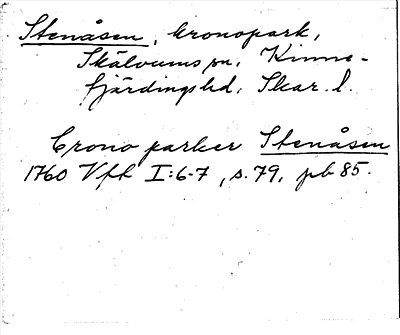 Stenåsen, kronopark,
Skälvums sn, Kinne-
fjärdings hd, Skar. l.
Crono parker Stenåsen
1760 Vfk I:6-7, s. 79, pb 85.